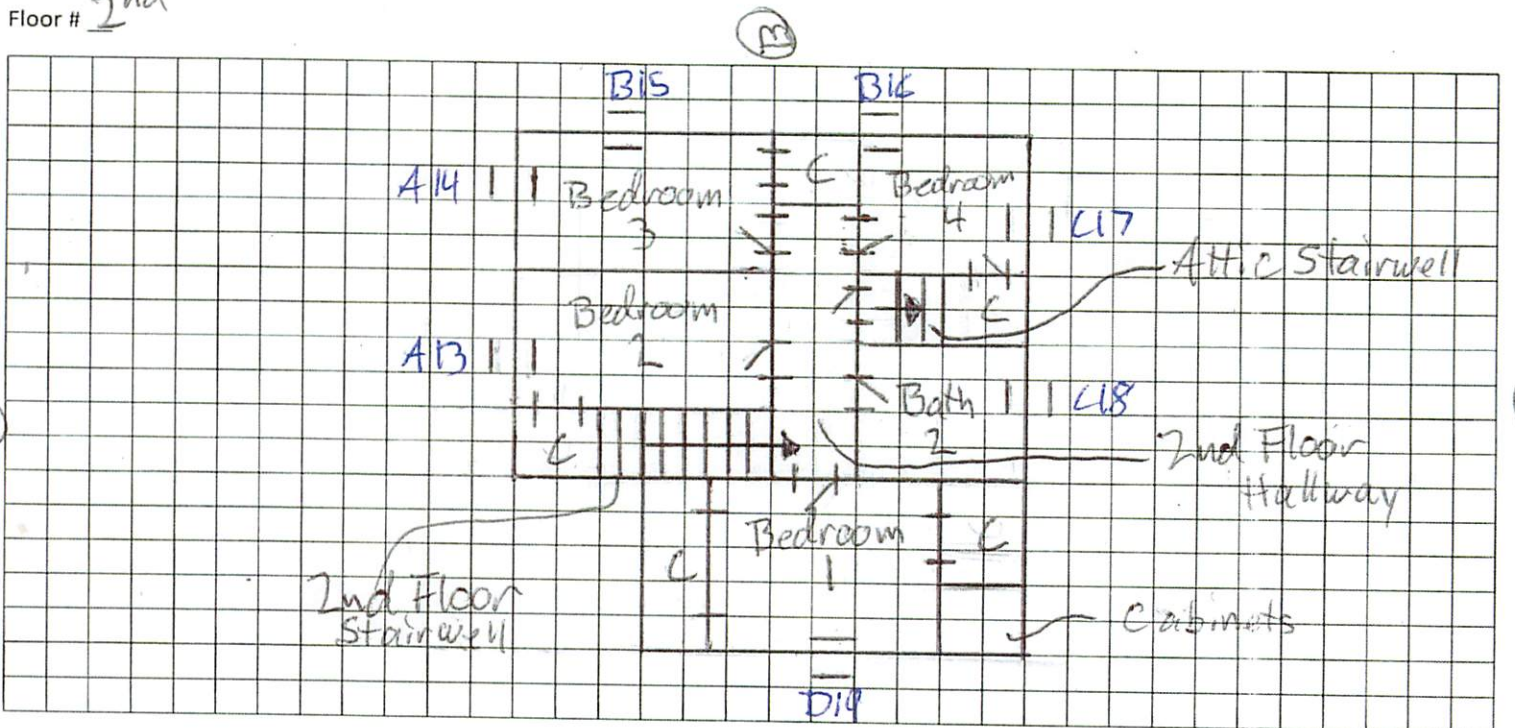 Floor # 2nd
B
B15
B16
A14
Bedroom
3
C
Bedroom
4
C17
Attic Stairwell
Bedroom
2
C
A13
Bath
2
C18
C
2nd Floor
Hallway
Bedroom
1
C
C
2nd Floor
Stairwell
Cabinets
D19